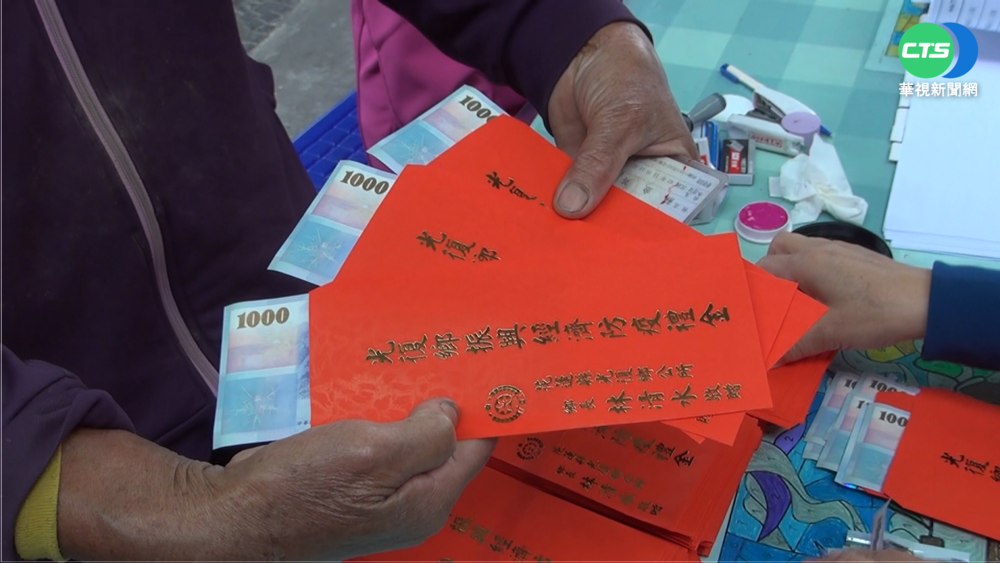 CTS
華視新聞網
1000
1000
1000
光復
光復鄉
光復鄉振興經濟防疫禮金
花蓮縣光復鄉公所
鄉長 林清水 致贈
疫禮金
鄉長 林清水 致贈
振興經濟
1000
1000
光復鄉